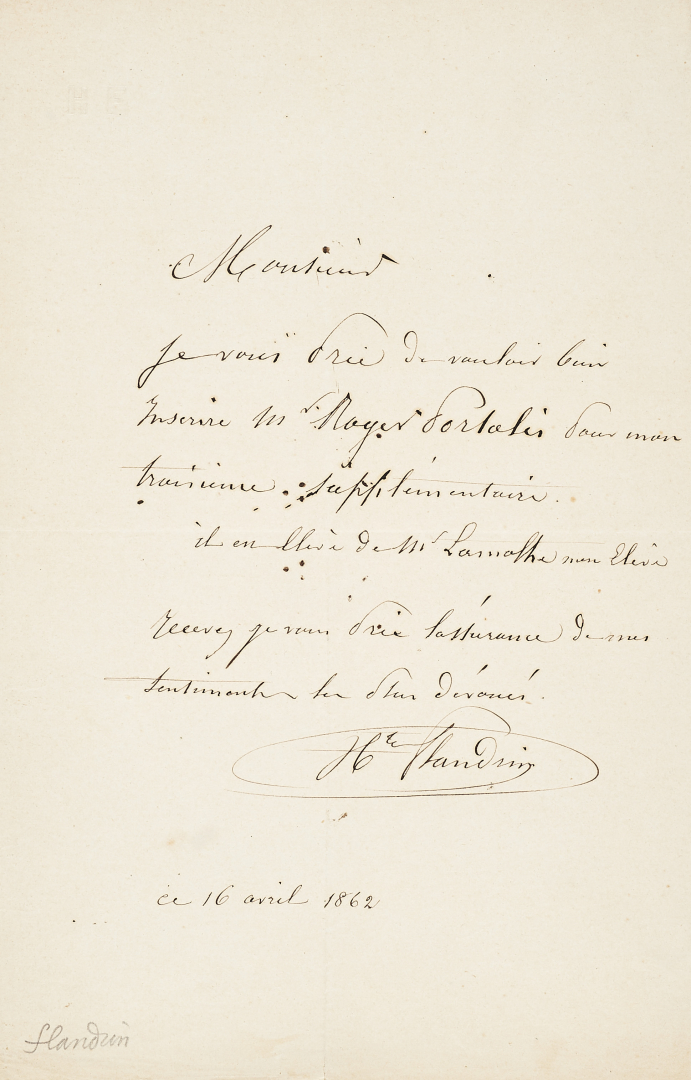 Monsieur
Je vous prie de vouloir bien
Inscrire Mr. Roger Portalis pour mon
troisieme supplémentaire.
il est Elève de Mr Lamothe mon Elève
recevez je vous prie l'assurance de mes
sentiments les plus dévoués.
Hte Flandrin
ce 16 avril 1862
flandrin